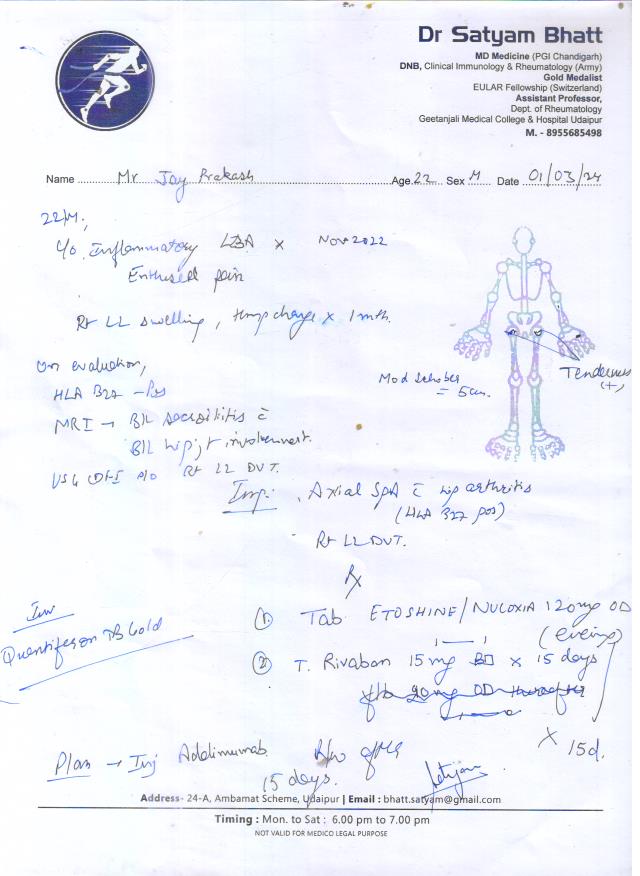 Dr Satyam Bhatt
MD Medicine (PGI Chandigarh)
DNB, Clinical Immunology & Rheumatology (Army)
Gold Medalist
EULAR Fellowship (Switzerland)
Assistant Professor,
Dept. of Rheumatology
Geetanjali Medical College & Hospital Udaipur
M. - 8955685498
Name Mr Jay Prakash Age 22 Sex M Date 01/03/24
22/M,
c/o Inflammatory LBA x Nov 2022
Enthesial pain
Rt LL swelling, temp change x 1 mth.
On evaluation,
HLA B27 - Pos
MRI → B/L Sacroiliitis c
B/L hip jt involvement.
USG s/o Rt LL DVT.
Mod Schober = 5cm.
Tenderness (+)
Imp: Axial SpA c hip arthritis
(HLA B27 pos)
Rt LL DVT.
Rx
Inv
Quantiferon TB Gold
1. Tab ETOSHINE/NUCOXIA 120mg OD
(evening)
2. T. Rivaban 15mg BD x 15 days
20mg OD thereafter
x 15d.
Plan → Inj Adalimumab
R/w after
15 days.
Address- 24-A, Ambamat Scheme, Udaipur | Email : bhatt.satyam@gmail.com
Timing : Mon. to Sat : 6.00 pm to 7.00 pm
NOT VALID FOR MEDICO LEGAL PURPOSE